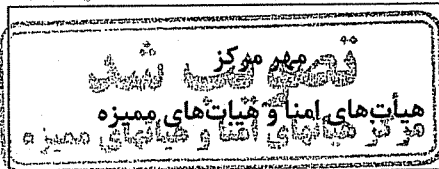 مهر مرکز
تصویب شد
هیأت‌های امنا و هیات‌های ممیزه
مرکز هیأتهای امنا و هیأتهای ممیزه